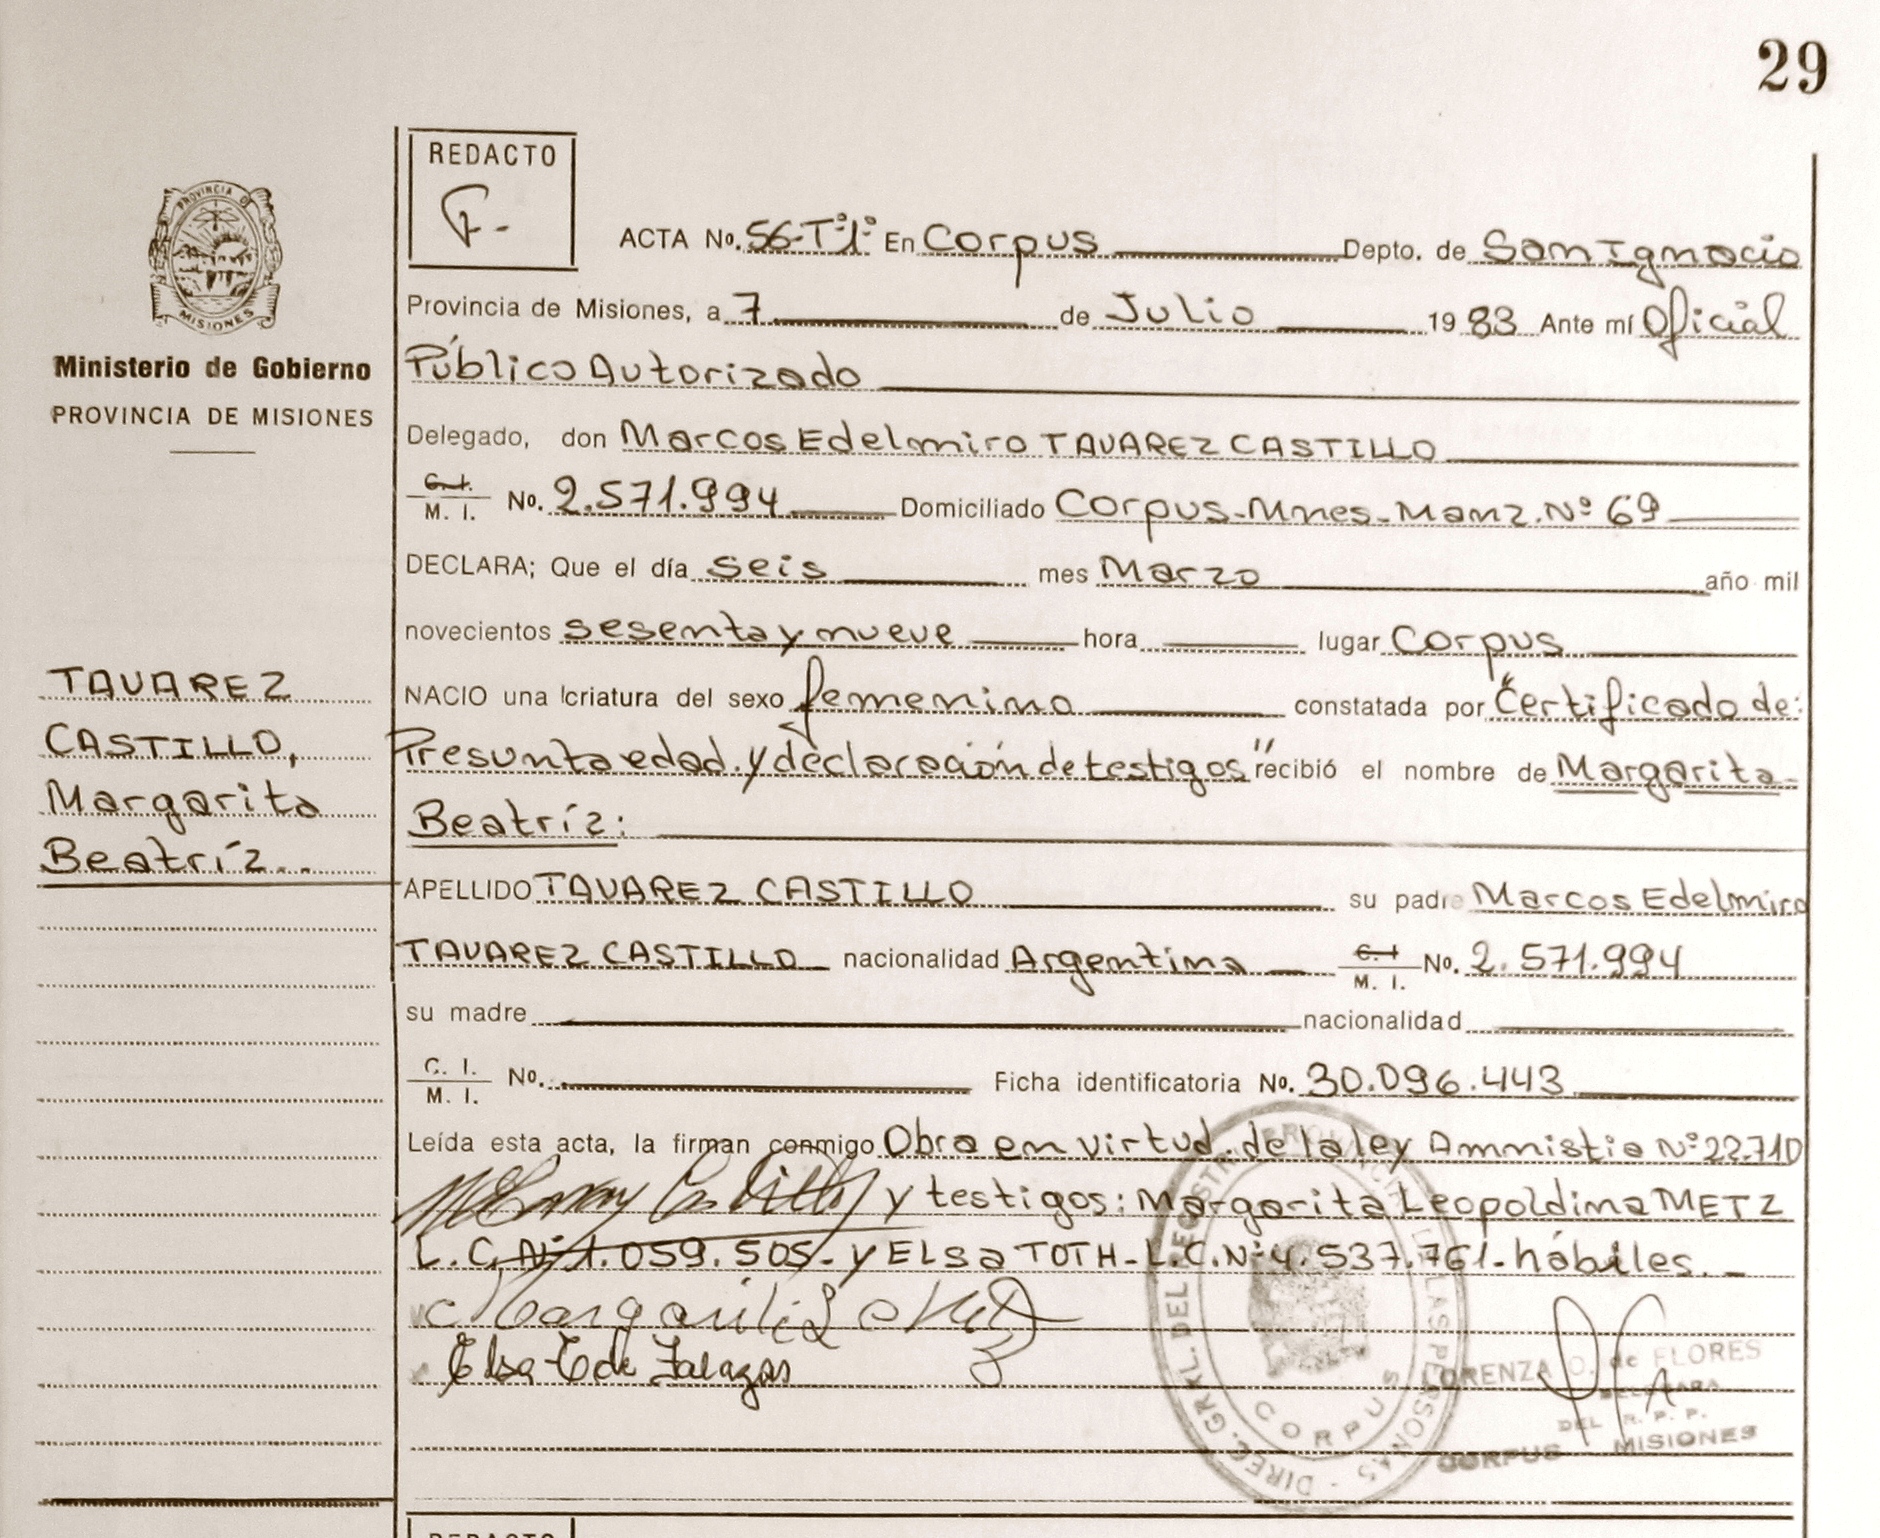 29
REDACTO
PROVINCIA D
MISIONES
Ministerio de Gobierno
PROVINCIA DE MISIONES
ACTA No. 56-Tº1º En Corpus Depto. de San Ignacio
Provincia de Misiones, a 7 de Julio 1983 Ante mí Oficial
Público Autorizado
Delegado, don Marcos Edelmiro TAVAREZ CASTILLO
C. I.
M. I. No. 2.571.994 Domiciliado Corpus-Mnes-Manz. Nº 69
DECLARA; Que el día seis mes Marzo año mil
novecientos sesenta y nueve hora lugar Corpus
NACIO una criatura del sexo femenino constatada por "Certificado de:
Presunta edad. y declaración de testigos" recibió el nombre de Margarita-
Beatríz:
TAVAREZ
CASTILLO,
Margarita
Beatríz..
APELLIDO TAVAREZ CASTILLO su padre Marcos Edelmiro
TAVAREZ CASTILLO nacionalidad Argentina C. I.
M. I. No. 2.571.994
su madre nacionalidad
C. I.
M. I. No. Ficha identificatoria No. 30.096.443
Leída esta acta, la firman conmigo Obra en virtud. de la ley Amnistia Nº 22.710
y testigos: Margarita Leopoldina METZ
L.C.Nº 1.059.505.- y ELSa TOTH-L.C.Nº 4.537.761-hábiles.
Elsa T de
LORENZA O. de FLORES
DEL R. P. P.
CORPUS MISIONES
DIREC. GRKL. DEL REGISTR LAS PERSONAS
CORPUS
REDACTO